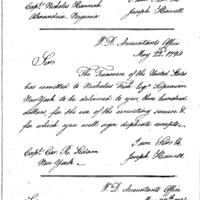 Capt. Nicholas Hannah
Alexandria Virginia
Joseph Howell
W.D. Accountants Office
May 22d. 1794
Sir
The Treasurer of the United States
has remitted to Nicholas Fish Esq. Supervisor
New York to be delivered to you three hundred
dollars, for the use of the recruiting service &
for which you will sign duplicate receipts.
I am Sir &c
Capt. Cor. R. Sedam
Joseph Howell
New York
W.D. Accountants Office